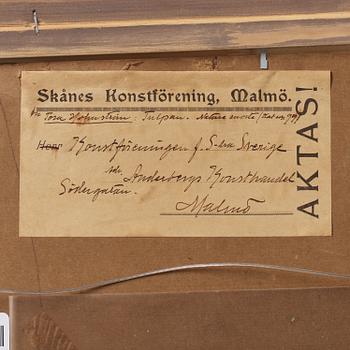 Skånes Konstförening, Malmö.
Tora Holmström: Tulpan. Nature morte
Herr Konstföreningen f. S-dra Sverige
adr. Anderbergs Konsthandel
Södergatan.
Malmö
AKTAS!